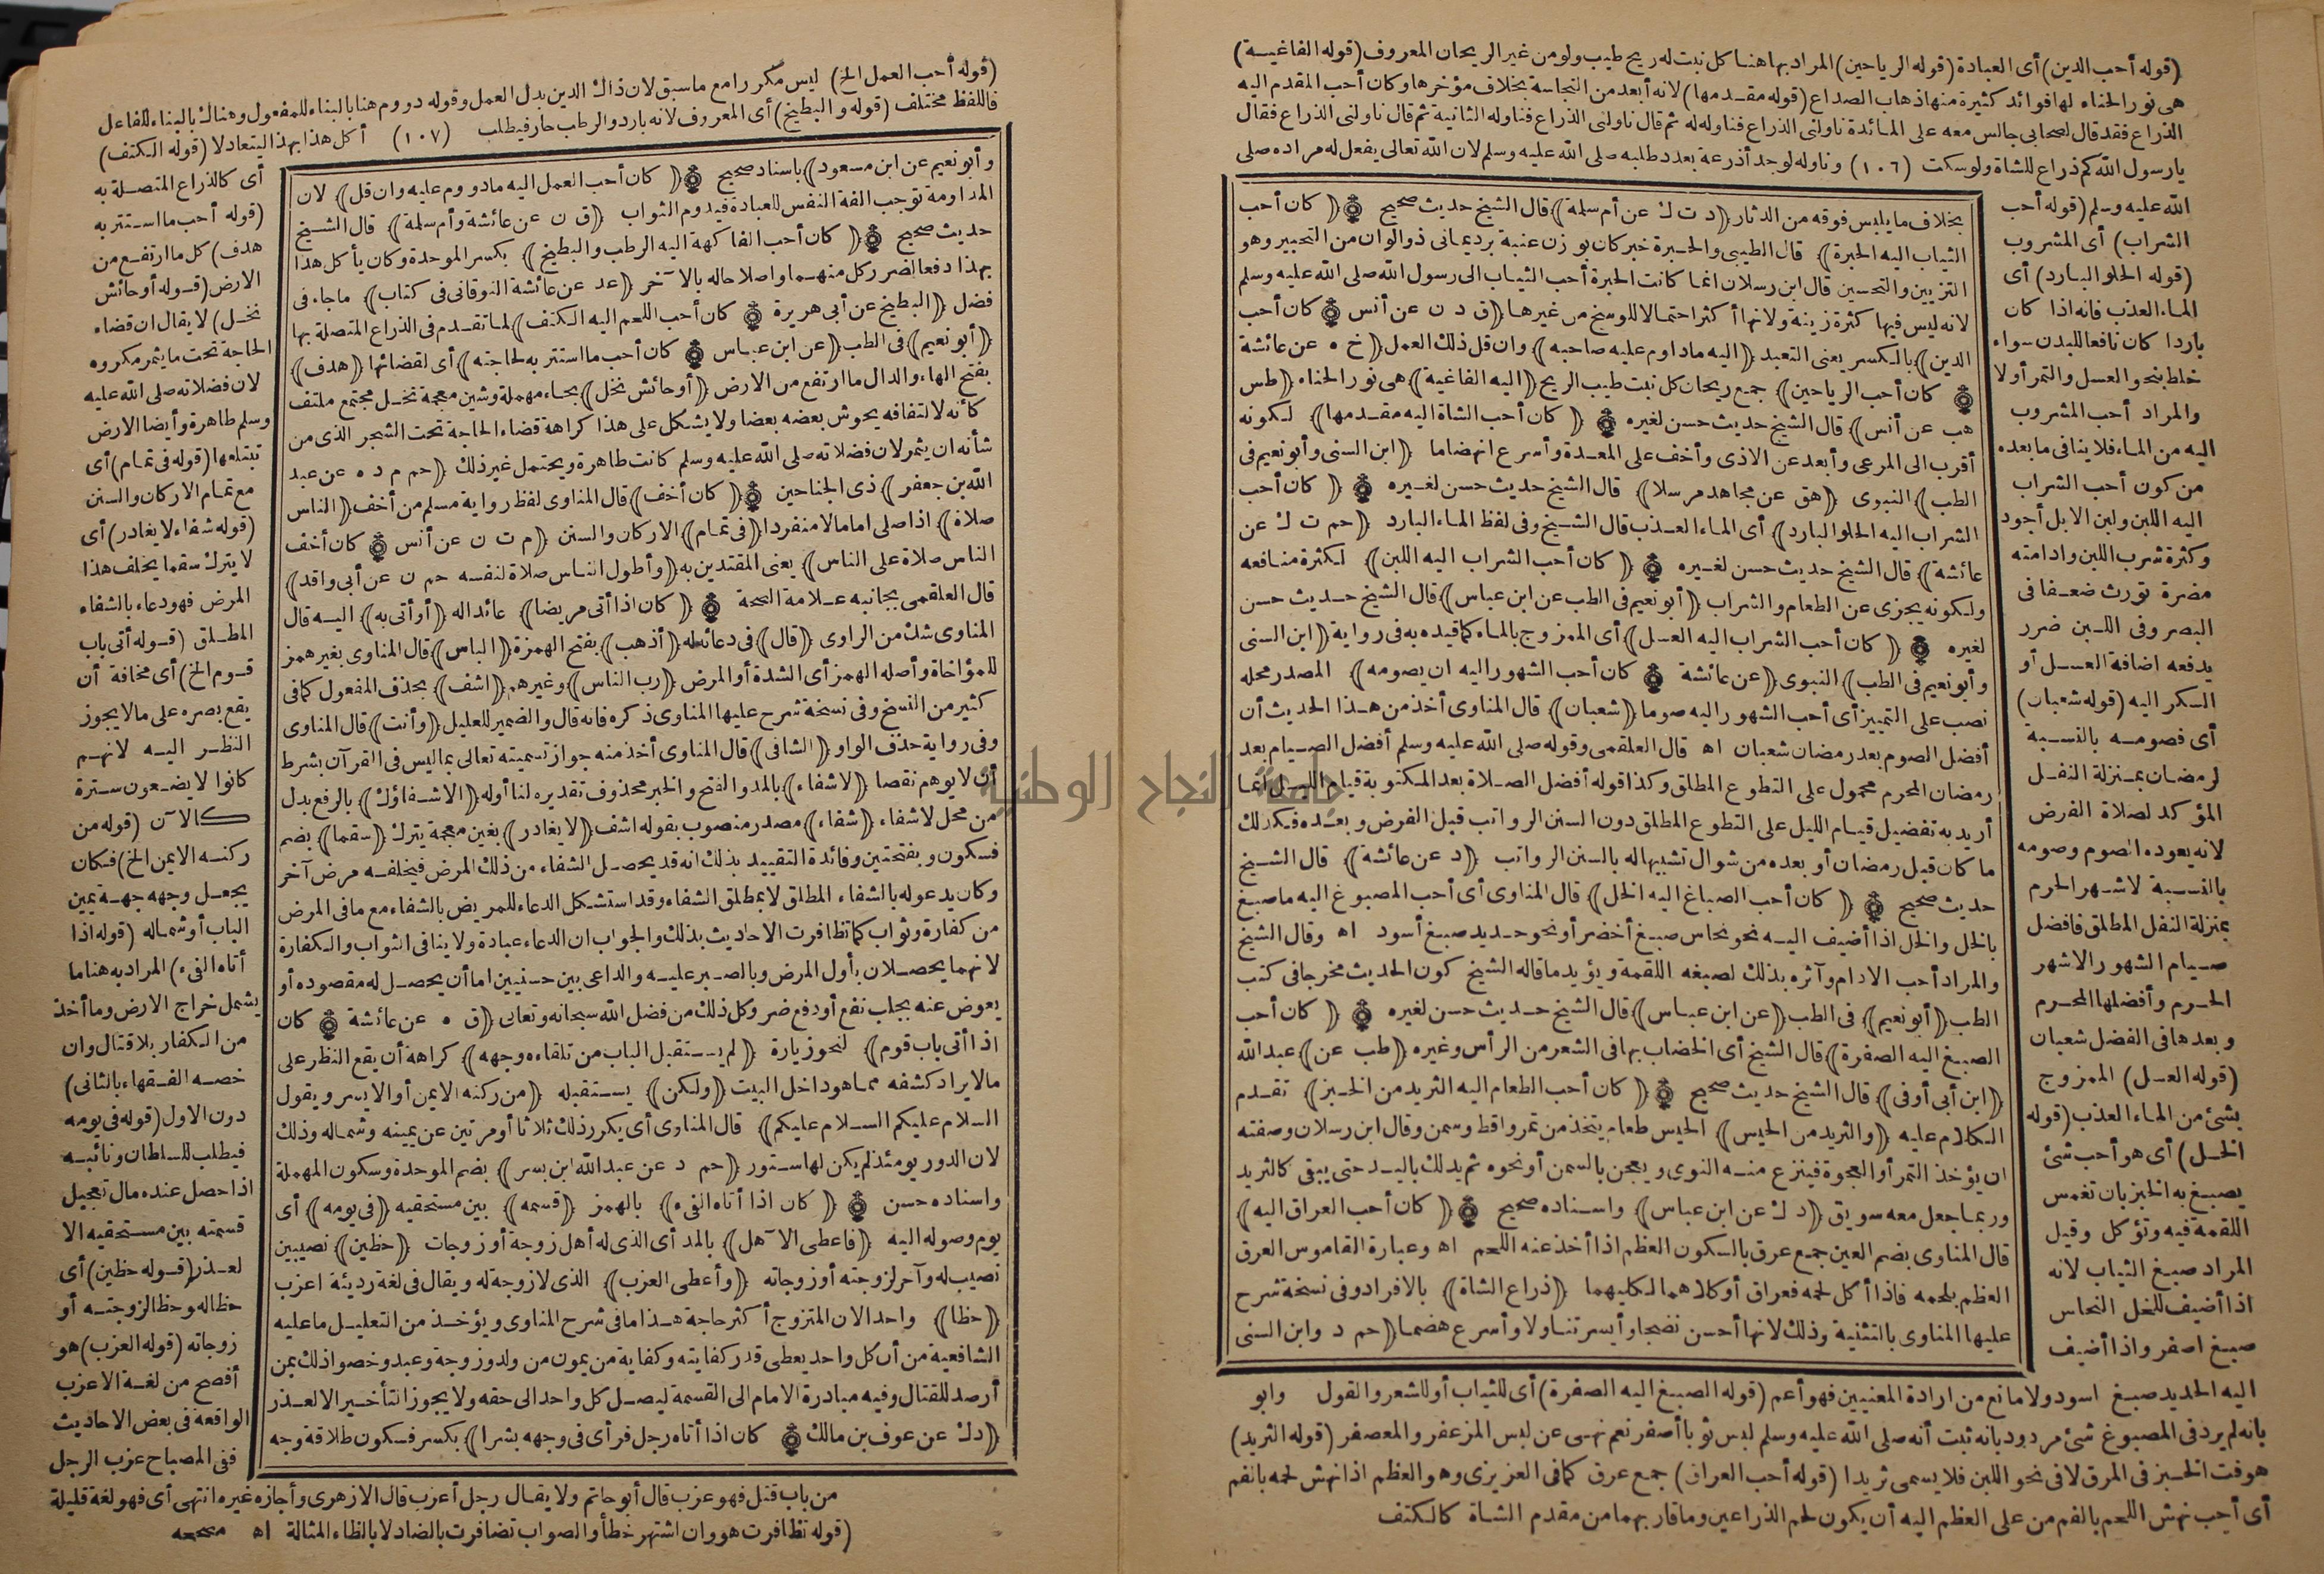 (قوله أحب الدين) أى العبادة (قوله الرياحين) المراد بها هنا كل نبت له ريح طيب ولو من غير الريحان المعروف (قوله الفاغية)
هى نور الحناء لها فوائد كثيرة منها ذهاب الصداع (قوله مقدمها) لانه أبعد من النجاسة بخلاف مؤخرها وكان أحب المقدم اليه
الذراع فقد قال لصحابى جالس معه على المائدة ناولنى الذراع فناوله له ثم قال ناولنى الذراع فناوله الثانية ثم قال ناولنى الذراع فقال
يارسول الله كم ذراع للشاة ولو سكت (١٠٦) وناوله لوجد أذرعة بعدد طلبه صلى الله عليه وسلم لان الله تعالى يفعل له مراده صلى
الله عليه وسلم (قوله أحب
الشراب) أى المشروب
(قوله الحلو البارد) أى
الماء العذب فانه اذا كان
باردا كان نافعا للبدن سواء
خلط بنحو العسل والتمر أولا
والمراد أحب المشروب
اليه من الماء فلا ينافى ما بعده
من كون أحب الشراب
اليه اللبن ولبن الابل أجود
وكثرة شرب اللبن وادامته
مضرة تورث ضعفا فى
البصر وفى اللبن ضرر
يدفعه اضافة العسل أو
السكر اليه (قوله شعبان)
أى فصومه بالنسبة
لرمضان بمنزلة النفل
المؤكد لصلاة الفرض
لانه يعوده الصوم وصومه
بالنسبة لاشهر الحرم
بمنزلة النفل المطلق فافضل
صيام الشهور الاشهر
الحرم وأفضلها المحرم
وبعدها فى الفضل شعبان
(قوله العسل) الممزوج
بشئ من الماء العذب (قوله
الخل) أى هو أحب شئ
يصبغ به الخبز بان تغمس
اللقمة فيه وتؤكل وقيل
المراد صبغ الثياب لانه
اذا أضيف للخل النحاس
صبغ اصفر واذا أضيف
بخلاف ما يلبس فوقه من الدثار (د ت ك عن أم سلمة) قال الشيخ حديث صحيح (كان أحب
الثياب اليه الحبرة) قال الطيبى والحبرة خبر كان بوزن عنبة برد يمانى ذو الوان من التحبير وهو
التزيين والتحسين قال ابن رسلان انما كانت الحبرة أحب الثياب الى رسول الله صلى الله عليه وسلم
لانه ليس فيها كثرة زينة ولانها أكثر احتمالا للوسخ من غيرها (ق د ن عن أنس) كان أحب
الدين) بالكسر يعنى التعبد (اليه ما داوم عليه صاحبه) وان قل ذلك العمل (خ ه عن عائشة
كان أحب الرياحين) جمع ريحان كل نبت طيب الريح (اليه الفاغية) هى نور الحناء (طس
هب عن أنس) قال الشيخ حديث حسن لغيره (كان أحب الشاة اليه مقدمها) لكونه
أقرب الى المرعى وأبعد عن الاذى وأخف على المعدة وأسرع انهضاما (ابن السنى وأبو نعيم فى
الطب) النبوى (هق عن مجاهد مرسلا) قال الشيخ حديث حسن لغيره (كان أحب
الشراب اليه الحلو البارد) أى الماء العذب قال الشيخ وفى لفظ الماء البارد (حم ت ك عن
عائشة) قال الشيخ حديث حسن لغيره (كان أحب الشراب اليه اللبن) لكثرة منافعه
ولكونه يجزى عن الطعام والشراب (أبو نعيم فى الطب عن ابن عباس) قال الشيخ حديث حسن
لغيره (كان أحب الشراب اليه العسل) أى الممزوج بالماء كما قيده به فى رواية (ابن السنى
وأبو نعيم فى الطب) النبوى (عن عائشة كان أحب الشهور اليه ان يصومه) المصدر محله
نصب على التمييز أى أحب الشهور اليه صوما (شعبان) قال المناوى أخذ من هذا الحديث أن
أفضل الصوم بعد رمضان شعبان اه قال العلقمى وقوله صلى الله عليه وسلم أفضل الصيام بعد
رمضان المحرم محمول على التطوع المطلق وكذا قوله أفضل الصلاة بعد المكتوبة قيام الليل انما
أريد به تفضيل قيام الليل على التطوع المطلق دون السنن الرواتب قبل الفرض وبعده فكذلك
ما كان قبل رمضان أو بعده من شوال تشبيها له بالسنن الرواتب (د عن عائشة) قال الشيخ
حديث صحيح (كان أحب الصباغ اليه الخل) قال المناوى أى أحب المصبوغ اليه ما صبغ
بالخل والخل اذا أضيف اليه نحو نحاس صبغ أخضر أو نحو حديد صبغ أسود اه وقال الشيخ
والمراد أحب الادام وآثره بذلك لصبغه اللقمة ويؤيد ما قاله الشيخ كون الحديث مخرجا فى كتب
الطب (أبو نعيم) فى الطب (عن ابن عباس) قال الشيخ حديث حسن لغيره (كان أحب
الصبغ اليه الصفرة) قال الشيخ أى الخضاب بها فى الشعر من الرأس وغيره (طب عن) عبد الله
(ابن أبى أوفى) قال الشيخ حديث صحيح (كان أحب الطعام اليه الثريد من الخبز) تقدم
الكلام عليه (والثريد من الحيس) الحيس طعام يتخذ من تمر واقط وسمن وقال ابن رسلان وصفته
ان يؤخذ التمر أو العجوة فينزع منه النوى ويعجن بالسمن أو نحوه ثم يدلك باليد حتى يبقى كالثريد
وربما جعل معه سويق (د ك عن ابن عباس) واسناده صحيح (كان أحب العراق اليه)
قال المناوى بضم العين جمع عرق بالسكون العظم اذا أخذ عنه اللحم اه وعبارة القاموس العرق
العظم بلحمه فاذا أكل لحمه فعراق أو كلاهما لكليهما (ذراع الشاة) بالافراد وفى نسخة شرح
عليها المناوى بالتثنية وذلك لانها أحسن نضجا وأيسر تناولا وأسرع هضما (حم د وابن السنى
وابو
اليه الحديد صبغ اسود ولا مانع من ارادة المعنيين فهو أعم (قوله الصبغ اليه الصفرة) أى للثياب أو للشعر والقول
بانه لم يرد فى المصبوغ شئ مردود بانه ثبت أنه صلى الله عليه وسلم لبس ثوبا أصفر نعم نهى عن لبس المزعفر والمعصفر (قوله الثريد)
هو فت الخبز فى المرق لا فى نحو اللبن فلا يسمى ثريدا (قوله أحب العراق) جمع عرق كما فى العزيزى وهو العظم اذا نهش لحمه بالفم
أى أحب نهش اللحم بالفم من على العظم اليه أن يكون لحم الذراعين وما قاربهما من مقدم الشاة كالكتف
(قوله أحب العمل الخ) ليس مكررا مع ما سبق لان ذاك الدين بدل العمل وقوله دووم هنا بالبناء للمفعول وهناك بالبناء للفاعل
فاللفظ مختلف (قوله والبطيخ) أى المعروف لانه بارد والرطب حار فيطلب (١٠٧) أكل هذا بهذا ليتعادلا (قوله الكتف)
أى كالذراع المتصلة به
(قوله أحب ما استتر به
هدف) كل ما ارتفع من
الارض (قوله أو حائش
نخل) لا يقال ان قضاء
الحاجة تحت ما يثمر مكروه
لان فضلاته صلى الله عليه
وسلم طاهرة وأيضا الارض
تبتلعها (قوله فى تمام) أى
مع تمام الاركان والسنن
(قوله شفاء لا يغادر) أى
لا يترك سقما يخلف هذا
المرض فهو دعاء بالشفاء
المطلق (قوله أتى باب
قوم الخ) أى مخافة أن
يقع بصره على ما لا يجوز
النظر اليه لانهم
كانوا لا يضعون سترة
كالآن (قوله من
ركنه الايمن الخ) فكان
يجعل وجهه جهة يمين
الباب أو شماله (قوله اذا
أتاه الفىء) المراد به هنا ما
يشمل خراج الارض وما أخذ
من الكفار بلا قتال وان
خصه الفقهاء بالثانى)
دون الاول (قوله فى يومه
فيطلب للسلطان ونائبه
اذا حصل عنده مال تعجيل
قسمته بين مستحقيه الا
لعذر (قوله حظين) أى
حظا له وحظا لزوجته أو
زوجاته (قوله العزب) هو
أفصح من لغة الاعزب
الواقعة فى بعض الاحاديث
ففى المصباح عزب الرجل
وأبو نعيم عن ابن مسعود) باسناد صحيح (كان أحب العمل اليه ما دووم عليه وان قل) لان
المداومة توجب الفة النفس للعبادة فيدوم الثواب (ق ن عن عائشة وأم سلمة) قال الشيخ
حديث صحيح (كان أحب الفاكهة اليه الرطب والبطيخ) بكسر الموحدة وكان يأكل هذا
بهذا دفعا لضرر كل منهما واصلاحا له بالآخر (عد عن عائشة النوقانى فى كتاب) ما جاء فى
فضل (البطيخ عن أبى هريرة كان أحب اللحم اليه الكتف) لما تقدم فى الذراع المتصلة بها
(أبو نعيم) فى الطب (عن ابن عباس كان أحب ما استتر به لحاجته) أى لقضائها (هدف)
بفتح الهاء والدال ما ارتفع من الارض (أو حائش نخل) بحاء مهملة وشين معجمة نخل مجتمع ملتف
كأنه لالتفافه يحوش بعضه بعضا ولا يشكل على هذا كراهة قضاء الحاجة تحت الشجر الذى من
شأنه ان يثمر لان فضلاته صلى الله عليه وسلم كانت طاهرة ويحتمل غير ذلك (حم م د ه عن عبد
الله بن جعفر) ذى الجناحين (كان أخف) قال المناوى لفظ رواية مسلم من أخف (الناس
صلاة) اذا صلى اماما لا منفردا (فى تمام) الاركان والسنن (م ت ن عن أنس كان أخف
الناس صلاة على الناس) يعنى المقتدين به (وأطول الناس صلاة لنفسه حم ن عن أبى واقد)
قال العلقمى بجانبه علامة الصحة (كان اذا أتى مريضا) عائدا له (أو أتى به) اليه قال
المناوى شك من الراوى (قال) فى دعائه له (أذهب) بفتح الهمزة (الباس) قال المناوى بغير همز
للمؤاخاة وأصله الهمز أى الشدة أو المرض (رب الناس) وغيرهم (اشف) بحذف المفعول كما فى
كثير من النسخ وفى نسخة شرح عليها المناوى ذكره فانه قال والضمير للعليل (وأنت) قال المناوى
وفى رواية حذف الواو (الشافى) قال المناوى أخذ منه جواز تسميته تعالى بما ليس فى القرآن بشرط
أن لا يوهم نقصا (لا شفاء) بالمد والفتح والخبر محذوف تقديره لنا أو له (الا شفاؤك) بالرفع بدل
من محل لا شفاء (شفاء) مصدر منصوب بقوله اشف (لا يغادر) بغين معجمة يترك (سقما) بضم
فسكون وبفتحتين وفائدة التقييد بذلك انه قد يحصل الشفاء من ذلك المرض فيخلفه مرض آخر
وكان يدعو له بالشفاء المطلق لا بمطلق الشفاء وقد استشكل الدعاء للمريض بالشفاء مع ما فى المرض
من كفارة وثواب كما تظافرت الاحاديث بذلك والجواب ان الدعاء عبادة ولا ينافى الثواب والكفارة
لانهما يحصلان بأول المرض وبالصبر عليه والداعى بين حسنيين اما أن يحصل له مقصوده أو
يعوض عنه بجلب نفع أو دفع ضر وكل ذلك من فضل الله سبحانه وتعالى (ق ه عن عائشة كان
اذا أتى باب قوم) لنحو زيارة (لم يستقبل الباب من تلقاء وجهه) كراهة أن يقع النظر على
ما لا يراد كشفه مما هو داخل البيت (ولكن) يستقبله (من ركنه الايمن أو الايسر ويقول
السلام عليكم السلام عليكم) قال المناوى أى يكرر ذلك ثلاثا أو مرتين عن يمينه وشماله وذلك
لان الدور يومئذ لم يكن لها ستور (حم د عن عبد الله ابن بسر) بضم الموحدة وسكون المهملة
واسناده حسن (كان اذا أتاه الفىء) بالهمز (قسمه) بين مستحقيه (فى يومه) أى
يوم وصوله اليه (فاعطى الآهل) بالمد أى الذى له أهل زوجة أو زوجات (حظين) نصيبين
نصيب له وآخر لزوجته أو زوجاته (وأعطى العزب) الذى لا زوجة له ويقال فى لغة رديئة اعزب
(حظا) واحدا لان المتزوج أكثر حاجة هذا ما فى شرح المناوى ويؤخذ من التعليل ما عليه
الشافعية من أن كل واحد يعطى قدر كفايته وكفاية من يمون من ولد وزوجة وعبد وخصوا ذلك بمن
أرصد للقتال وفيه مبادرة الامام الى القسمة ليصل كل واحد الى حقه ولا يجوز التأخير الا لعذر
(د ك عن عوف بن مالك كان اذا أتاه رجل فرأى فى وجهه بشرا) بكسر فسكون طلاقة وجه
من باب قتل فهو عزب قال أبو حاتم ولا يقال رجل أعزب قال الازهرى وأجازه غيره انتهى أى فهو لغة قليلة
(قوله تظافرت هو وان اشتهر خطأ والصواب تضافرت بالضاد لا بالظاء المثالة اه مصححه
جامعة النجاح الوطنية